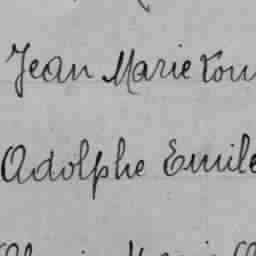 Jean Marie
Adolphe Emile